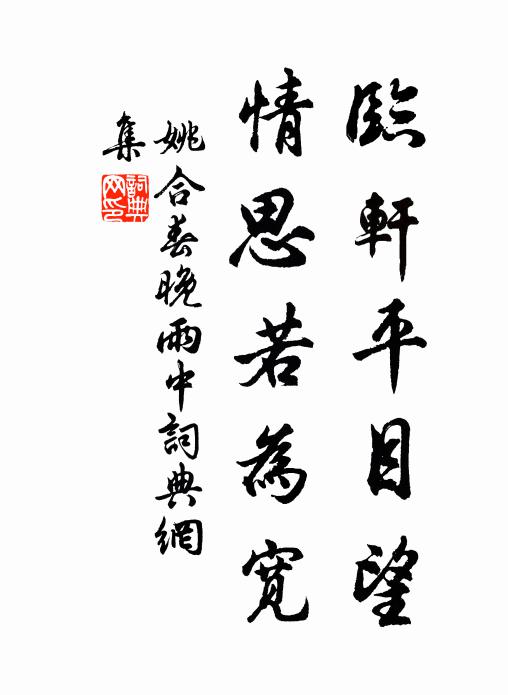 臨軒平目望
情思若為寬
姚合春晚雨中詞典網
集
詞典
网印